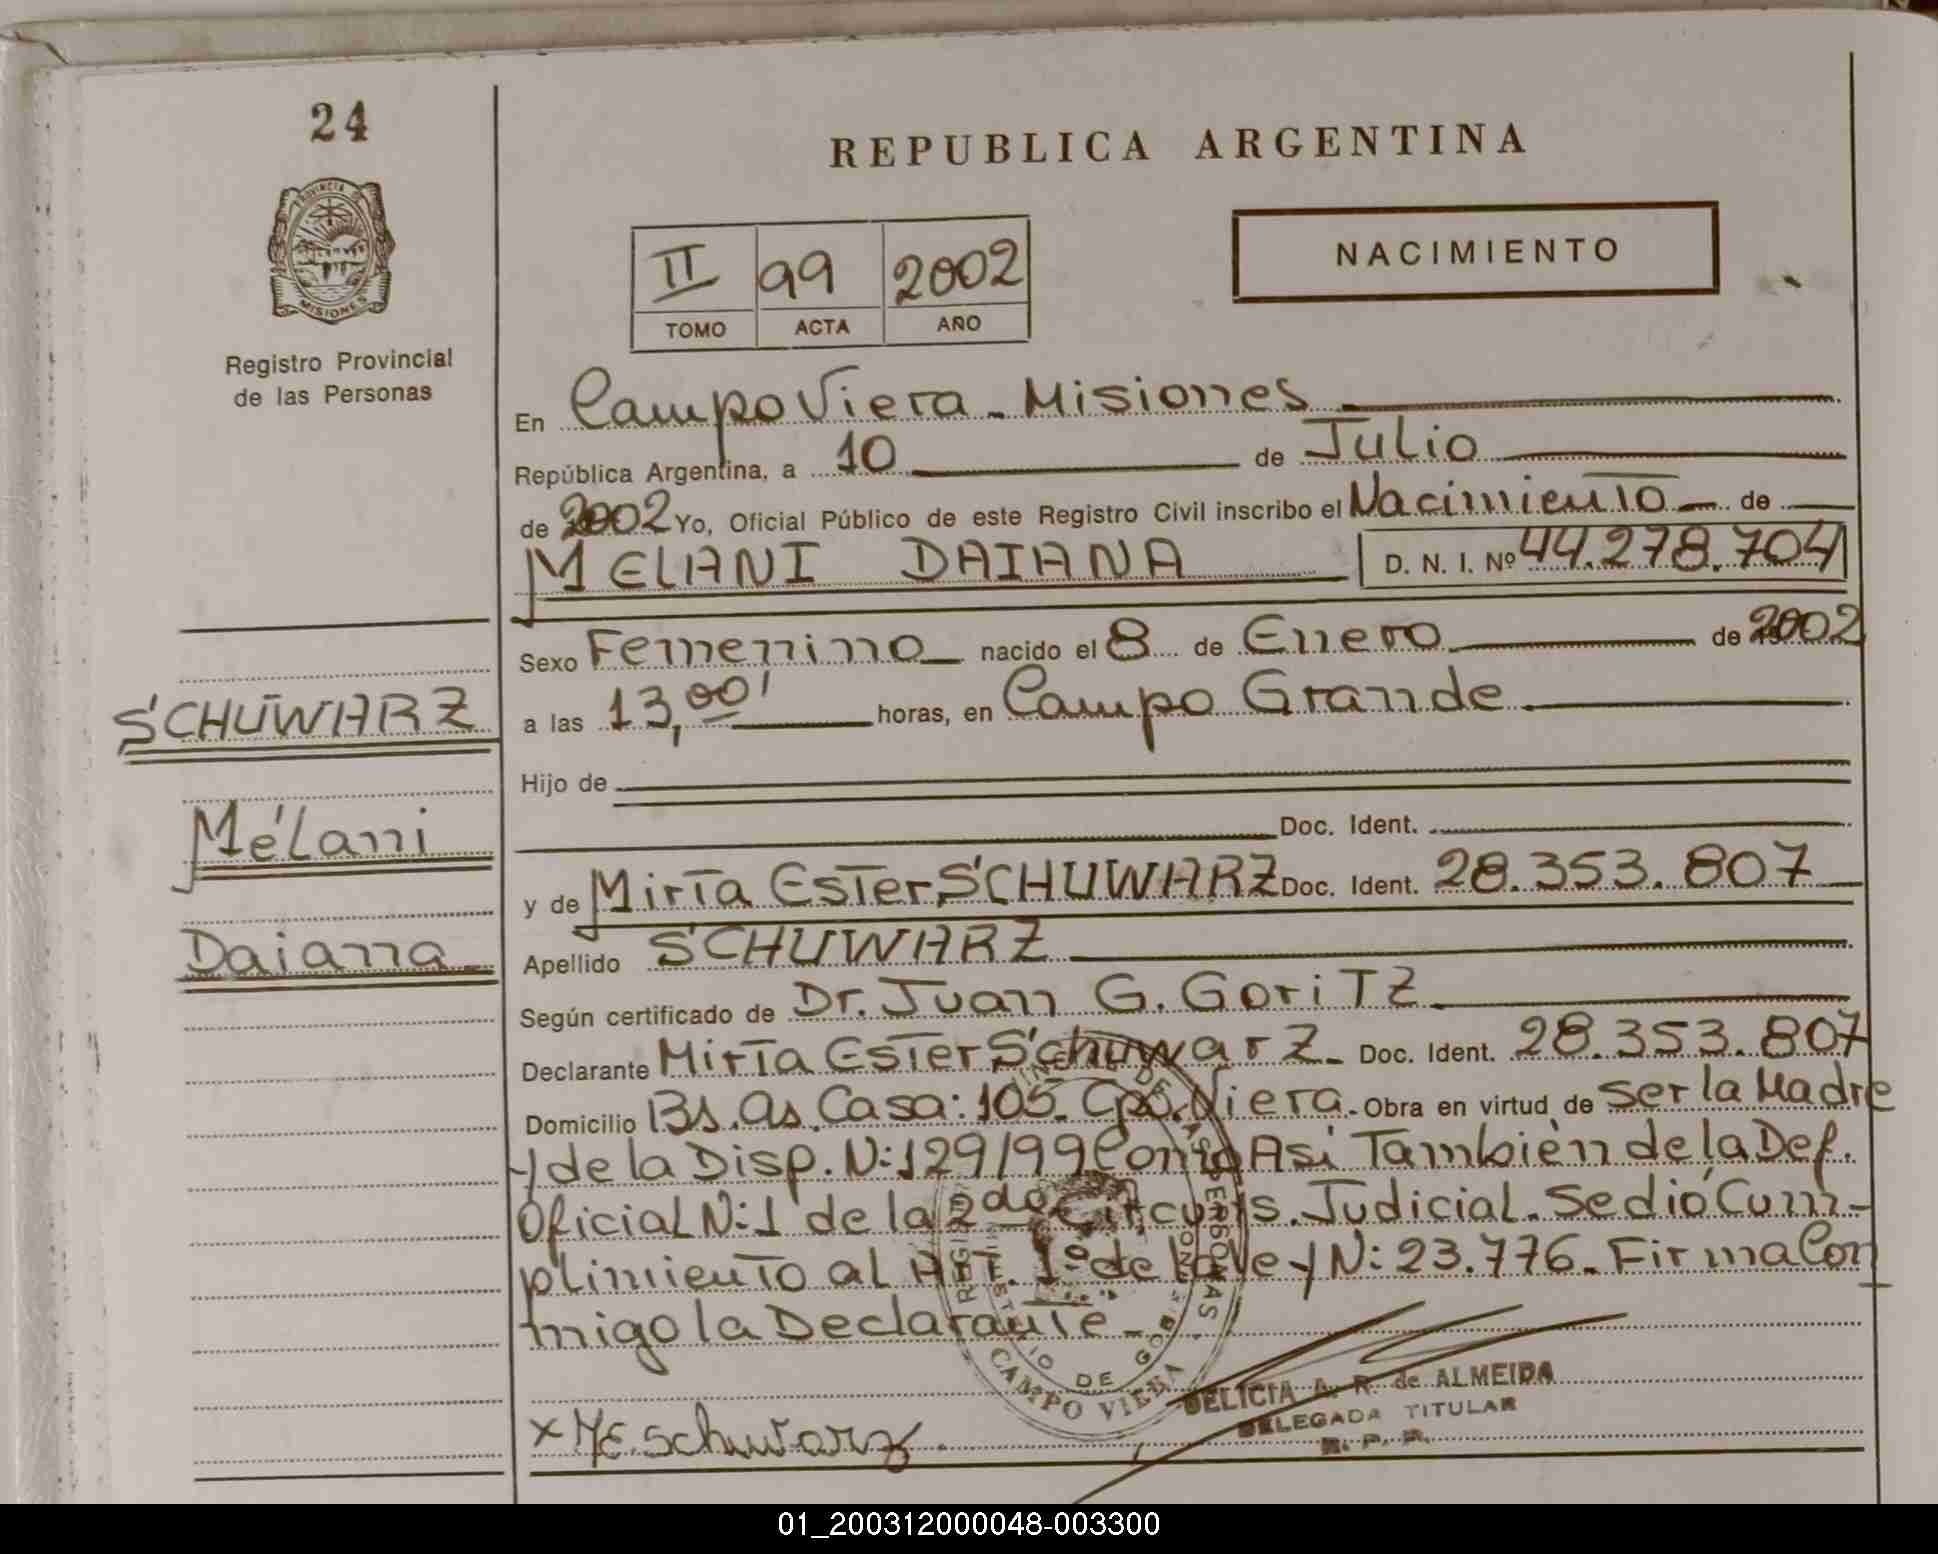 24
PROVINCIA DE
MISIONES
Registro Provincial
de las Personas
SCHUWARZ
Mélani
Daiana
REPUBLICA ARGENTINA
II 99 2002
TOMO ACTA AÑO
NACIMIENTO
En Campo Viera - Misiones
República Argentina, a 10 de Julio
de 2002 Yo, Oficial Público de este Registro Civil inscribo el Nacimiento de
MELANI DAIANA D. N. I. Nº 44.278.704
Sexo Femenino nacido el 8 de Enero de 2002
a las 13,00' horas, en Campo Grande
Hijo de
Doc. Ident.
y de Mirta Ester SCHUWARZ Doc. Ident. 28.353.807
Apellido SCHUWARZ
Según certificado de Dr. Juan G. GoriTZ
Declarante Mirta Ester Schuwarz - Doc. Ident. 28.353.807
Domicilio Bs. as. Casa: 105. Cpo. Viera. Obra en virtud de ser la Madre
y de la Disp. N: 129/99 Como Asi También de la Def.
Oficial N: 1 de la 2da Circuns. Judicial. Se dió Cum-
plimiento al Art. 1º de la Ley N: 23.776. Firma Con
migo la Declarante -
CAMPO VIERA
x ME. schuwarz
DELICIA A. R. de ALMEIDA
DELEGADA TITULAR
R. P. P.
01_200312000048-003300